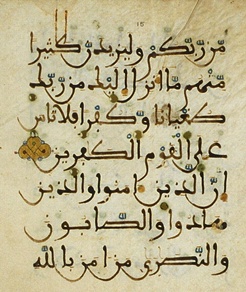 15
من ربكم وليزيدن كثيرا
منهم ما أنزل إليك من ربك
طغيانا وكفرا فلا تأس
على القوم الكفرين
إن الذين ءامنوا والذين
هادوا والصابون
والنصرى من ءامن بالله